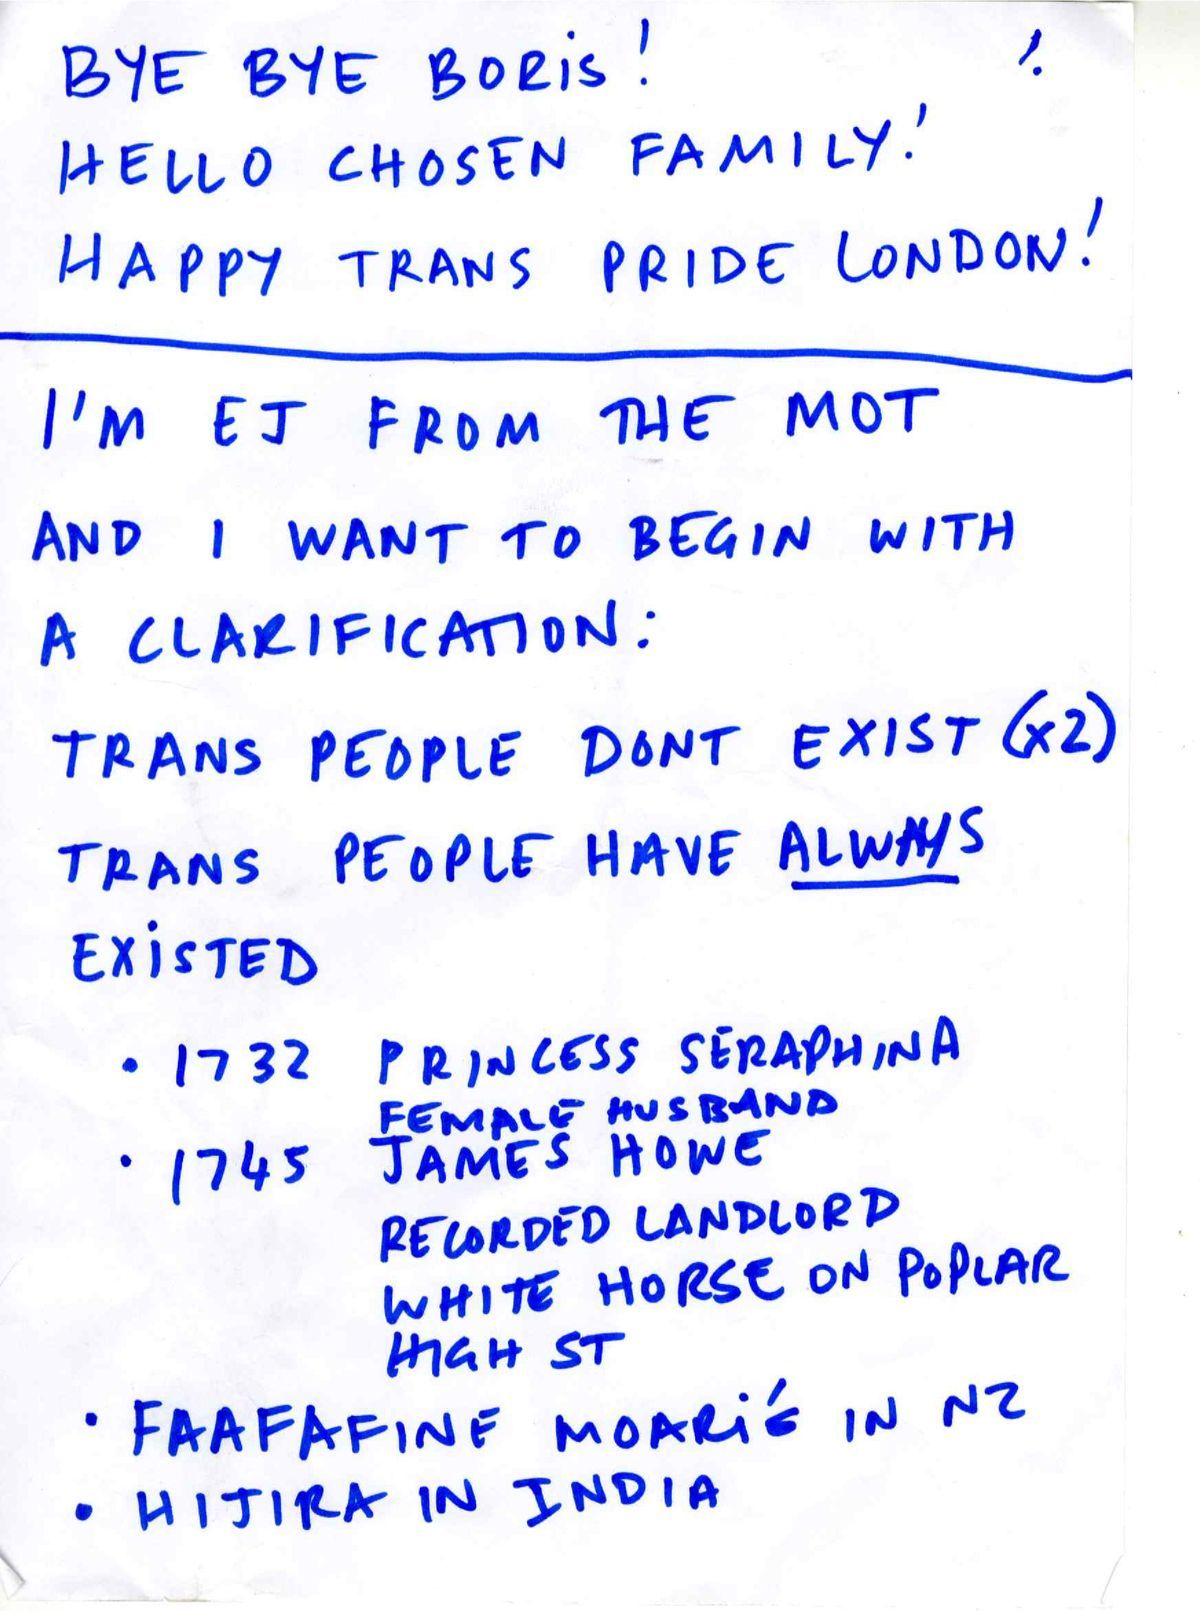 BYE BYE BORiS! !
HELLO CHOSEN FAMILY!
HAPPY TRANS PRIDE LONDON!
I'M EJ FROM THE MOT
AND I WANT TO BEGIN WITH
A CLARIFICATION:
TRANS PEOPLE DONT EXIST (x2)
TRANS PEOPLE HAVE ALWAYS
EXiSTED
• 1732 PRINCESS SERAPHINA
FEMALE HUSBAND
• 1745 JAMES HOWE
RECORDED LANDLORD
WHITE HORSE ON POPLAR
HIGH ST
• FAAFAFINE MOARi'S IN NZ
• HIJIRA IN INDIA